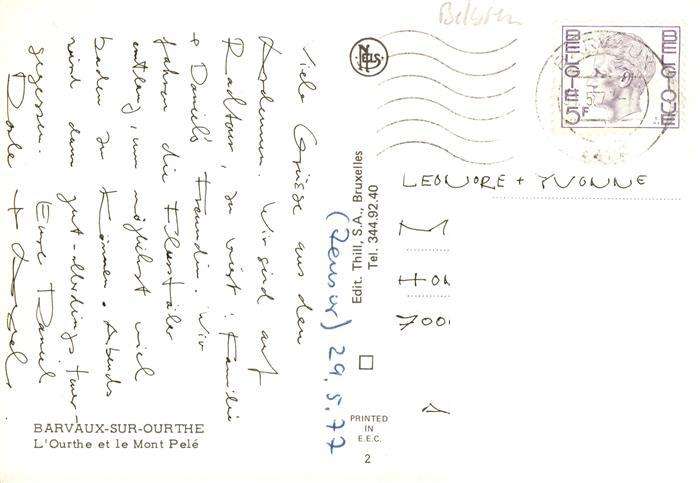 Belgien
BELGIQUE
BELGIË
5F
NELS
Viele Grüsse aus den
Ardennen. Wir sind auf
Radtour, zu viert: Familie
+ Daniels Freundin. Wir
fahren die Flusstäler
entlang, um möglichst viel
baden zu können. Abends
wird dann gut - allerdings teuer -
gegessen. Eure Daniel
(Zensur) 29.5.77
Edit. Thill, S.A., Bruxelles
Tel. 344.92.40
LEONORE + YVONNE
M
HOH
700
BARVAUX-SUR-OURTHE
L'Ourthe et le Mont Pelé
PRINTED
IN
E.E.C.
2